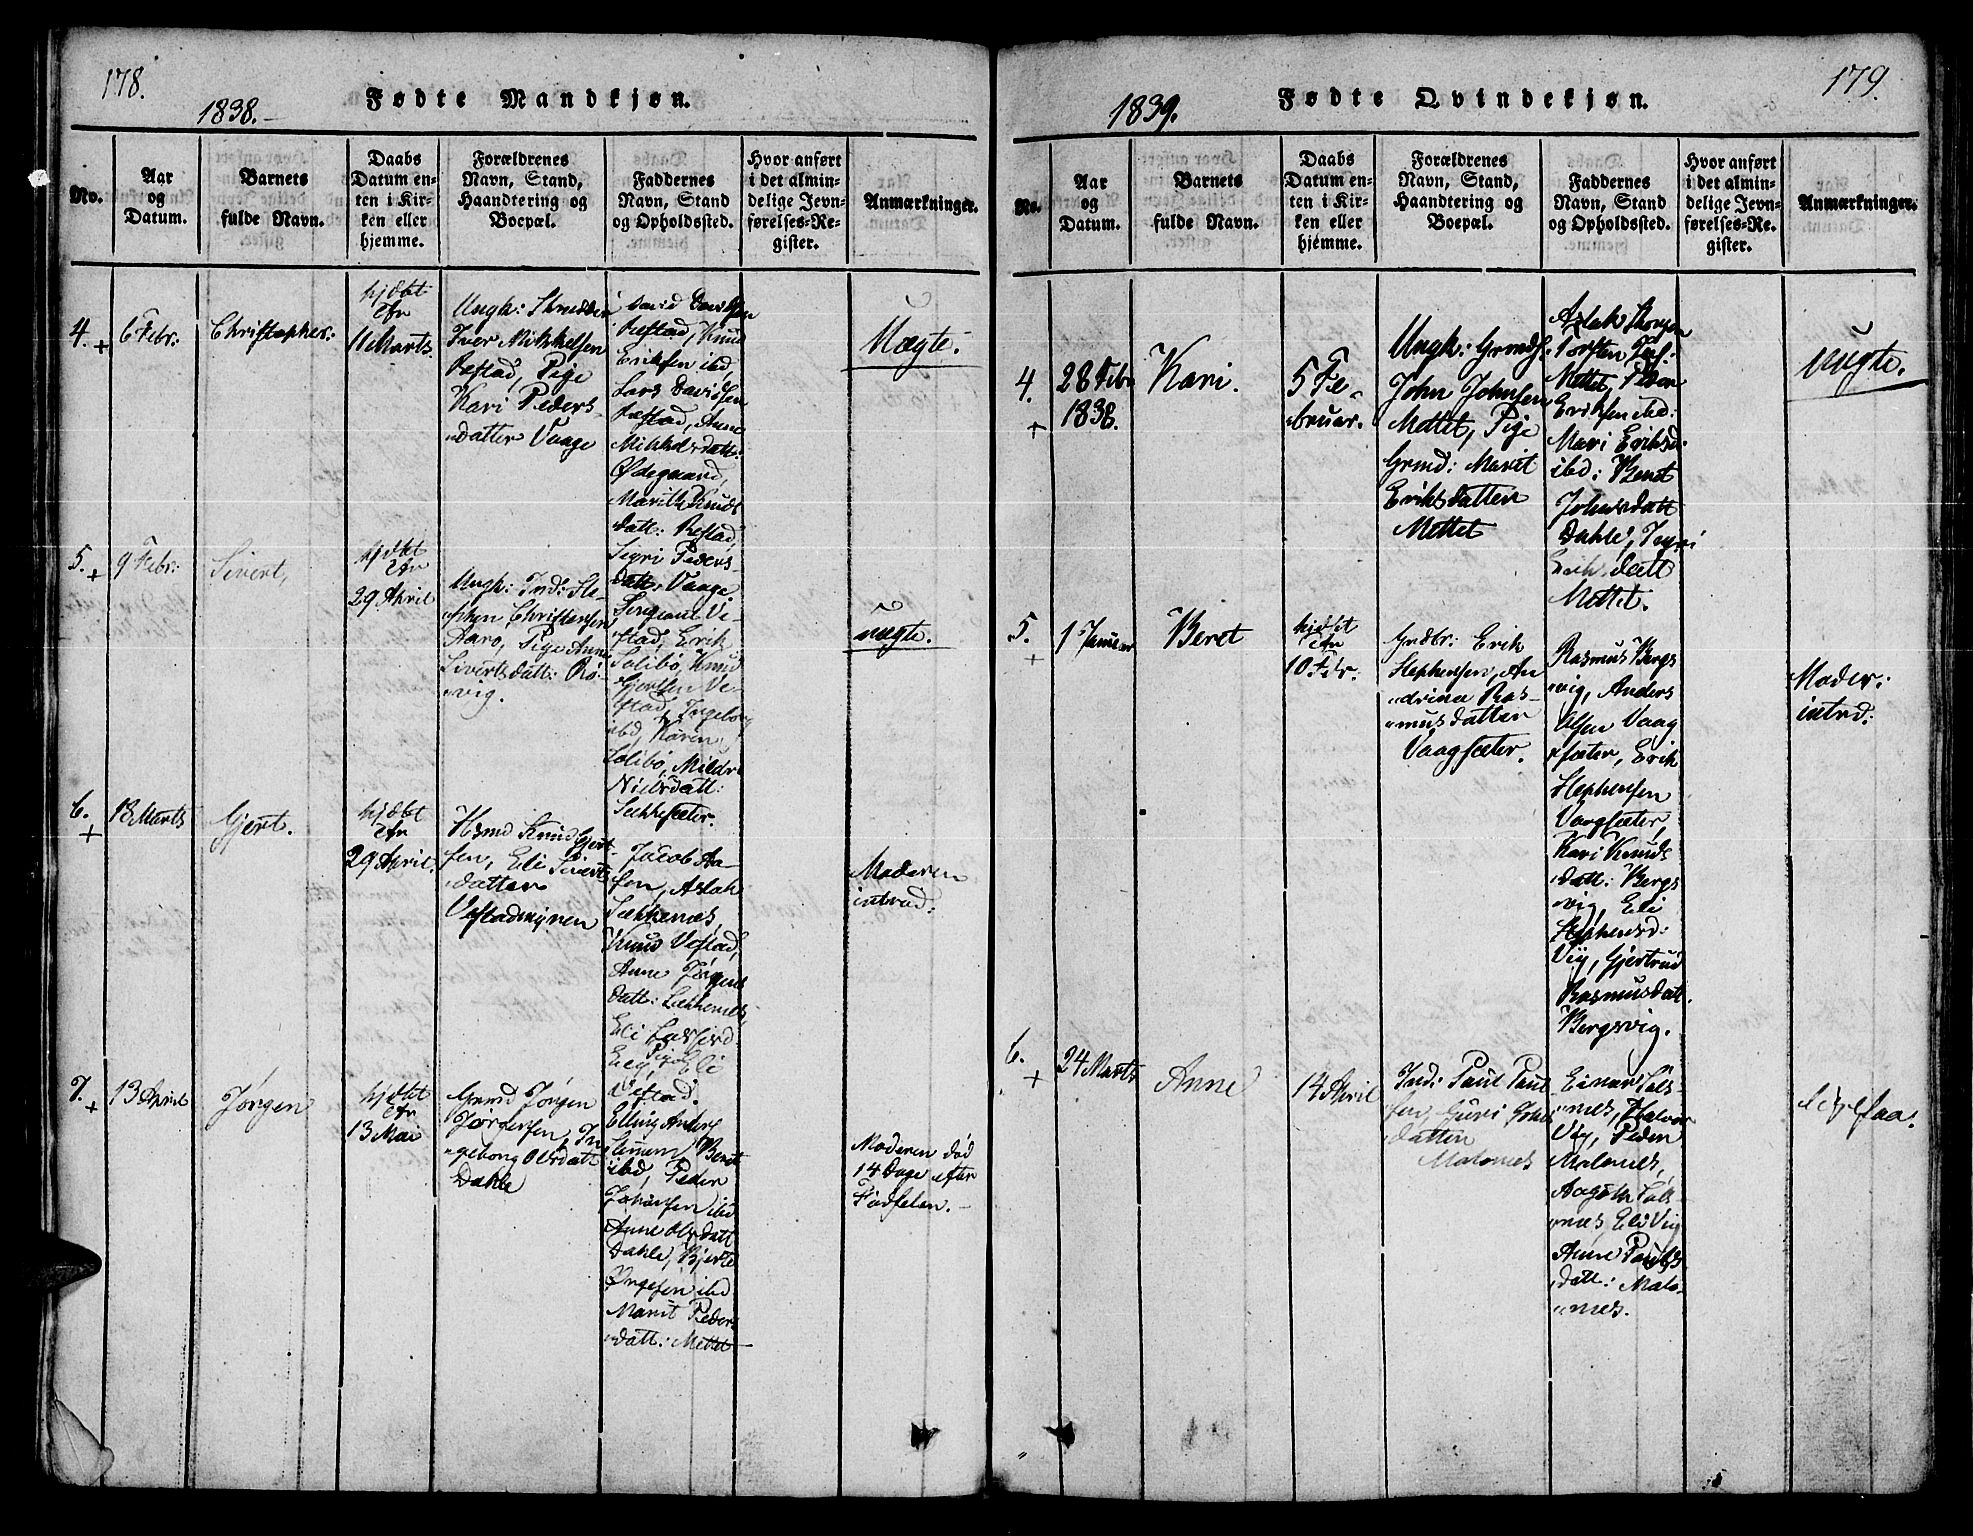 178.
1838.
Fødte Mandkjøn.
No.
Aar
og
Datum.
Barnets
fulde Navn.
Daabs
Datum en-
ten i Kir-
ken eller
hjemme.
Forældrenes
Navn, Stand,
Haandtering og
Boepæl.
Faddernes
Navn, Stand
og Opholdssted.
Hvor anført
i det almin-
delige Jevn-
førelses-Re-
gister.
Anmærkninger.
4. +
6 Febr:
Christopher.
hjdbt
11 Marts
Ungk:
Iver Mikkelsen
Pige
Kari Peders
datter Vaage
David Davidsen
Knud
Eriksen ibd,
Lars Davidsen
Anne
Mikkelsdatt:
Ødegaard,
Marith Knuds
datt:
Sigri Peders-
datt: Vaage.
Uægte.
5. +
9 Febr:
Sivert,
hjdbt
29 April
Ungk: Ind: Ste-
phen Christensen
Pige Anne
Sivertsdatt: Rø-
vig.
Sergeant Ve-
stad, Erik
Solibø, Knud
Gjertsen Ve-
stad, Ingeborg
ibd, Karen
Solibø, Mildri
Nielsdatt:
Sekkesæter.
uægte.
6. +
18 Marts
Gjert.
hjdbt
29 April.
Hsmd Knud Gjert-
sen, Eli Sivert
datter
Vestadmyren
Jacob Aa-
sen, Aslak
Sekkenæs,
Knud Vestad,
Anne Jørgens
datt: Sekkenæs,
Eli
Pige Eli
Vestad.
Moderen
introd:
7. +
13 April
Jørgen
hjdbt
13 Mai
Grmd Jørgen
Jørgensen, In-
geborg Olsdatt
Dahle
Elling Anders
Berit
ibd, Peder
Johansen ibd
Anne Olsdatt
Dahle,
ibd
Marit Peders-
datt: Mettet
Moderen død
14 Dage efter
Fødselen.
179.
1839.
Fødte Qvindekjøn.
No.
Aar
og
Datum.
Barnets
fulde Navn.
Daabs
Datum en-
ten i Kir-
ken eller
hjemme.
Forældrenes
Navn, Stand,
Haandtering og
Boepæl.
Faddernes
Navn, Stand
og Opholdssted.
Hvor anført
i det almin-
delige Jevn-
førelses-Re-
gister.
Anmærkninger.
4. +
28 Febr
1838.
Kari.
5 Fe-
bruar.
Ungk: Grmds:
John Johnsen
Mettet, Pige
Grmd: Marit
Eriksdatter
Mettet
Aslak
Torsten
Mettet, Peder
Eriksen ibd:
Mari Eriksd:
ibd: Beret
Johnsdatt
Dahle,
Eriksdatt
Mettet.
uægte.
5. +
1 Januar
Beret
hjdbt
10 Febr.
Grdbr: Erik
Stephensen, An-
drina Ras-
musdatter
Vaagsæter.
Rasmus Bergs
vig, Anders
Olsen Vaag
sæter, Erik
Stephensen
Vaagsæter,
Kari Knuds
datt: Bergs
vig, Eli
Stephensd:
Vig, Gjertrud
Rasmusdatt.
Bergsvig.
Moder:
intrd:
6. +
24 Marts
Anne
14 April
Ind: Paul Paul
sen, Guri
datter
Malones
Einar
Halvor
Vig, Peder
Malones,
Eli Vig
Anne Pauls
datt: Malo-
nes.